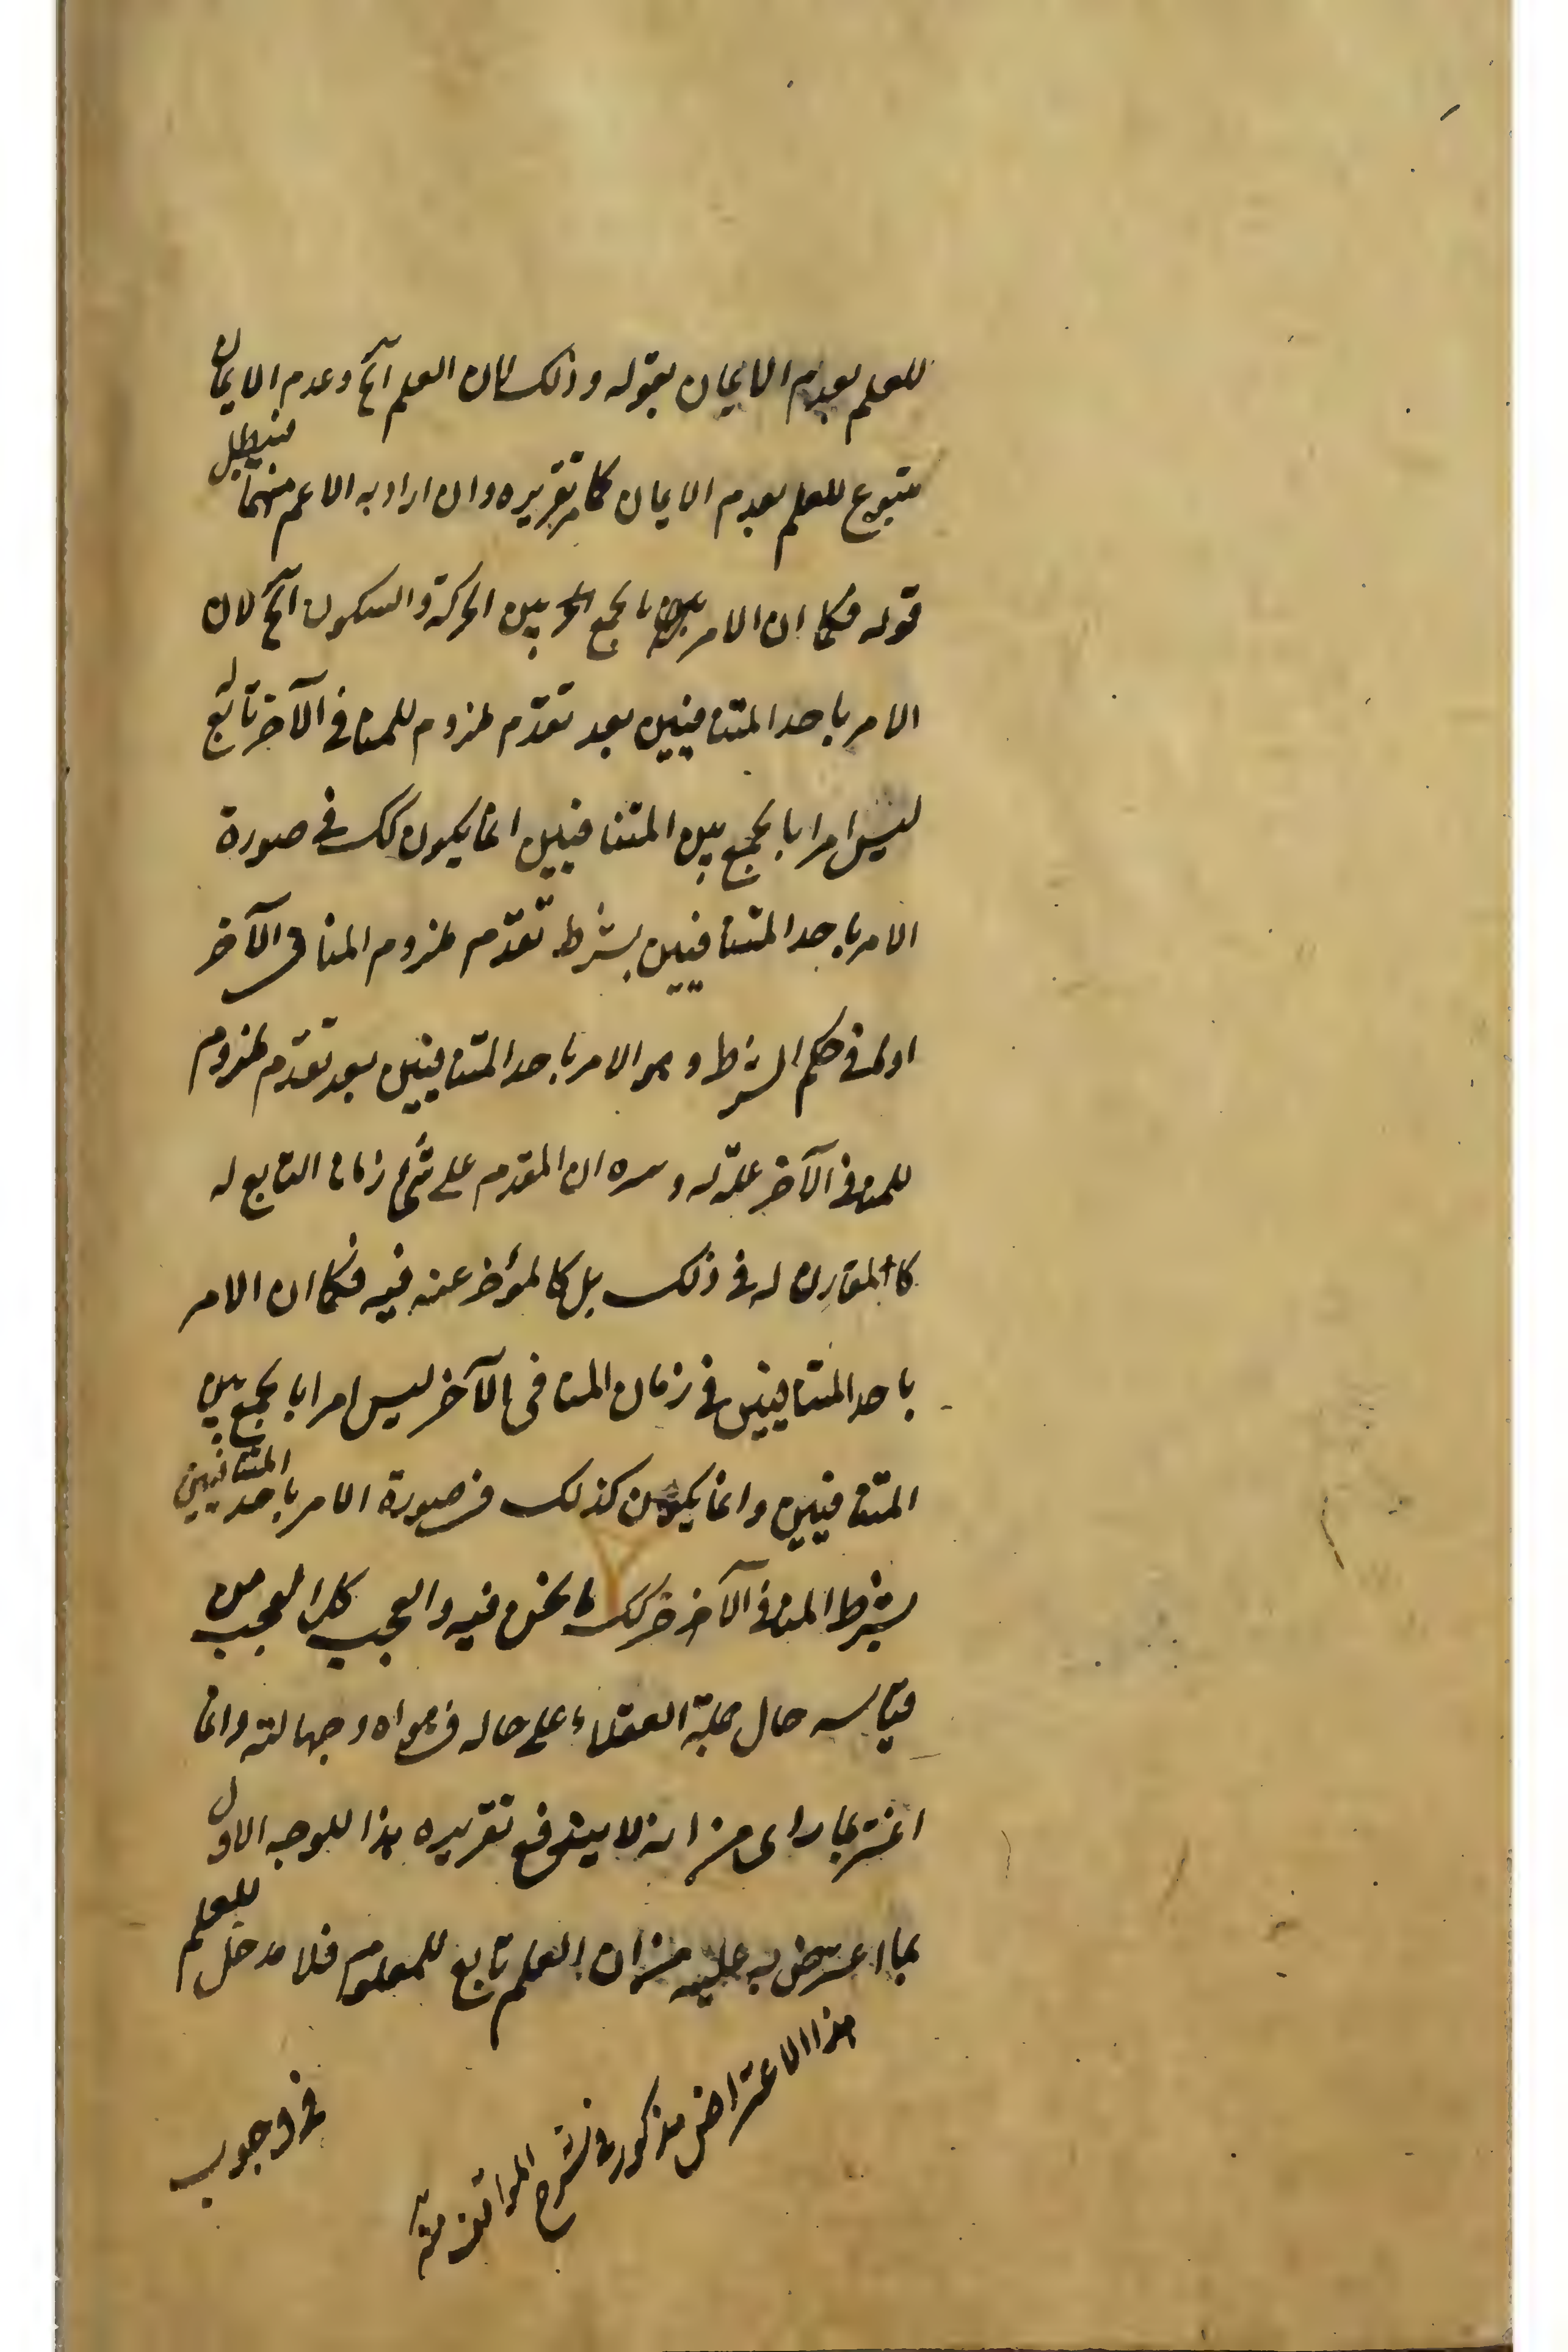 للعلم بعدم الايمان بقوله وذلك لان العلم آلخ وعدم الايمان
متبوع للعلم بعدم الايمان كما مر تقريره وان اراد به الاعم منهما فيبطل
قوله فكما ان الامر بالجمع بين الحركة والسكون آلخ لان
الامر باحد المتنافيين بعد تقدم ملزوم للمنافى الآخر تابع له
ليس امرا بالجمع بين المتنافيين انما يكون كك فى صورة
الامر باحد المتنافيين بشرط تقدم ملزوم المنافى الآخر
او له فى حكم الشرط وهو الامر باحد المتنافيين بعد تقدم ملزوم
للمنافى الآخر علة له وسره ان المقدم على شئ زمانا التابع له
كالمقارن له فى ذلك بل كالمؤخر عنه فيه فكما ان الامر
باحد المتنافيين فى زمان المنافى الآخر ليس امرا بالجمع بين
المتنافيين وانما يكون كذلك فى صورة الامر باحد المتنافيين
بشرط المنافى الآخر فكك ما نحن فيه والعجب كل العجب من
قياسه حال جملة العقلاء على حاله فى هواه وجهالته وانما
اغتر بما راى من انه لا يندفع تقريره هذا للوجه الاول
بما اعترض به عليه من ان العلم تابع للمعلوم فلا مدخل للعلم
فى وجوب
هذا الاعتراض مذكور فى شرح المواقف منه